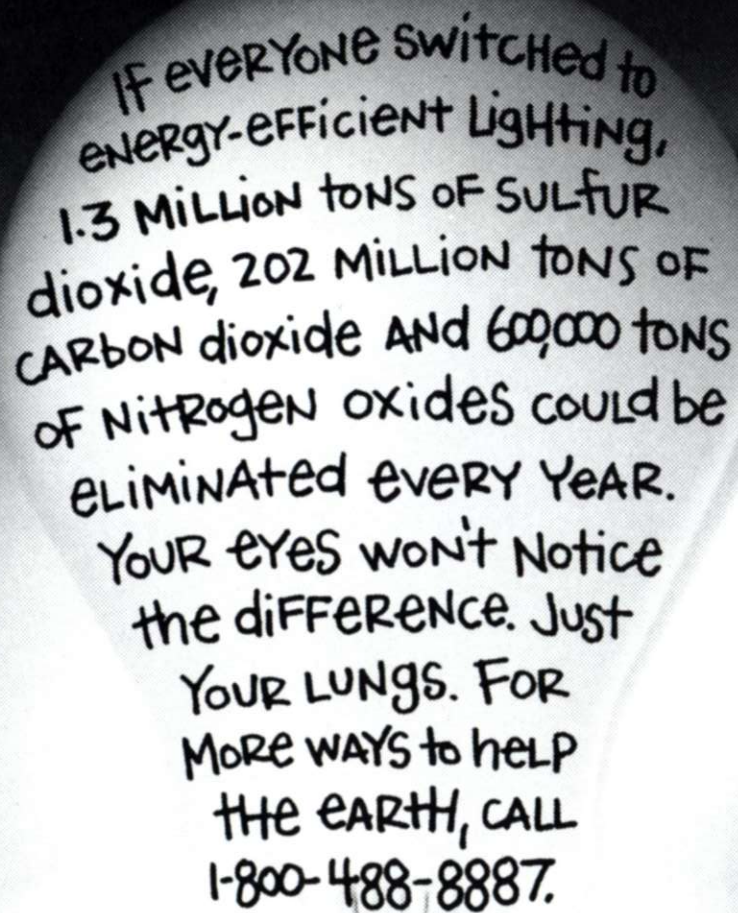 IF eVERYONe SwitCHed to
eNeRgY-eFFicieNt LigHtiNg,
1.3 MiLLioN toNS oF SULfUR
dioxide, 202 MiLLioN toNS oF
CARboN dioxide ANd 600,000 toNS
oF NitRogeN oxides could be
eLiMiNAted eveRY YeAR.
YoUR eYes woN't Notice
the diFFeReNce. Just
YoUR LUNgs. FoR
MoRe wAYS to heLP
tHe eARtH, cALL
1-800-488-8887.